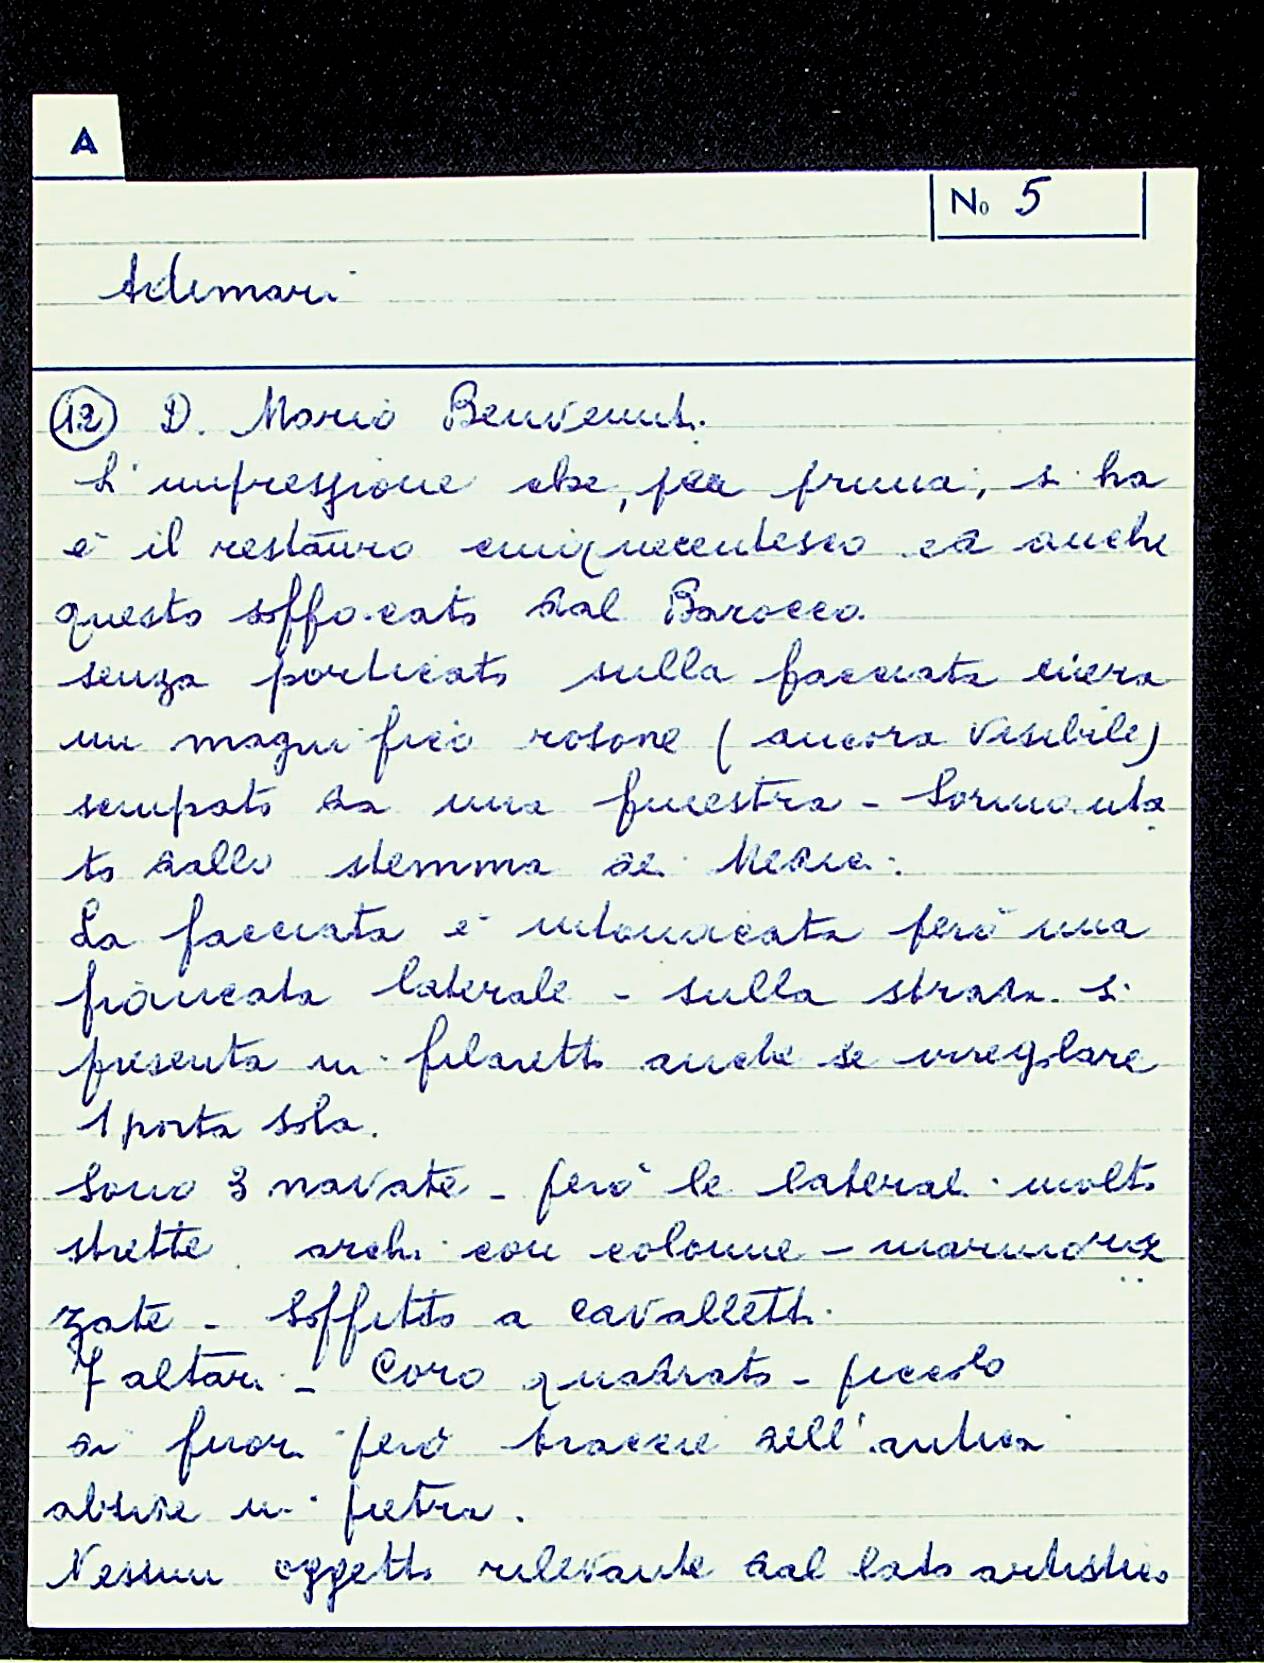 A
No 5
Ademari
12 D. Mario Benvenuti
L'impressione che, per prima, si ha
è il restauro cinquecentesco ed anche
questo soffocato dal Barocco.
senza porticato sulla facciata c'era
un magnifico rosone (ancora visibile)
sciupato da una finestra - Sormonta
to dallo stemma dei Medici.
La facciata è intonicata però una
fiancata laterale - sulla strada si
presenta in filaretto anche se irregolare
1 porta sola.
Sono 3 navate - però le laterali molto
strette archi con colonne - marmoriz
zate - Soffitto a cavalletti.
7 altari - Coro quadrato - piccolo
di fuori però traccie dell'antica
abside in pietra.
Nessun oggetto rilevante dal lato artistico